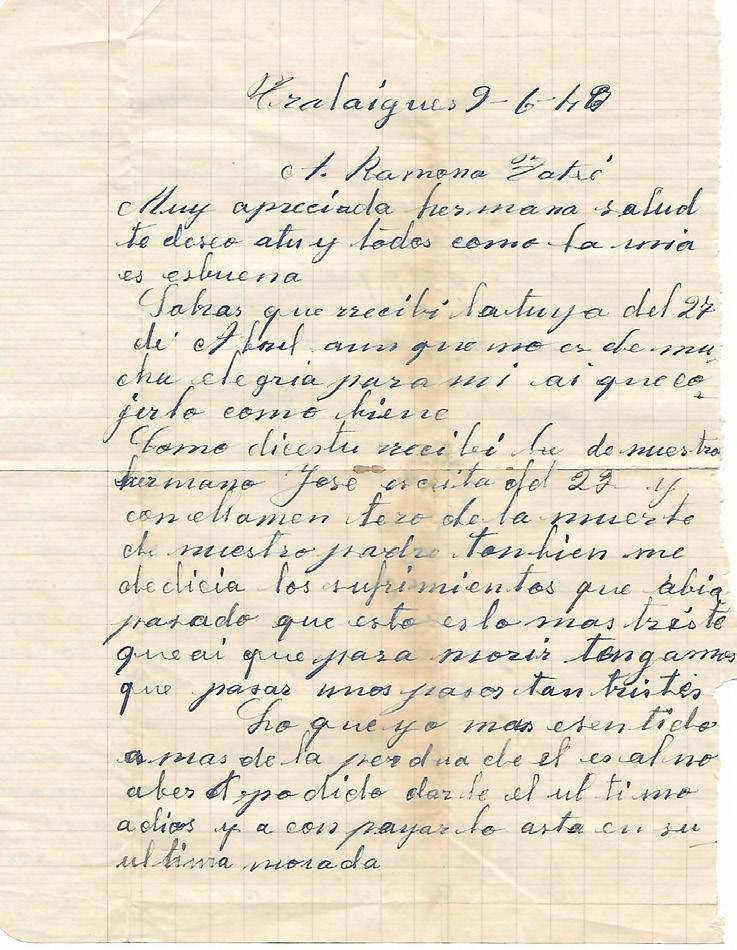 Tralaigues 9-6-48
A. Ramona Tatxé
Muy apreciada hermana salud
te deseo atu y todos como la mia
es esbuena
Sabras que rrecibi latuya del 27
de Abril aun que no es de mu
cha elegria para mi ai que co
jerlo como biene
Como dicestu rrecibi la de nuestro
hermano José escrita del 22 y
con ellamen tero de la muerte
de nuestro padre tanbien me
dedicia los sufrimientos que abia
pasado que esto eslo mas triste
queai que para morir tengamos
que pasar unos pasos tan tristes
Lo que yo mas esentido
a mas de la perdua de el es alno
aber podido darle el ultimo
adios y a conpayarlo asta en su
ultima morada